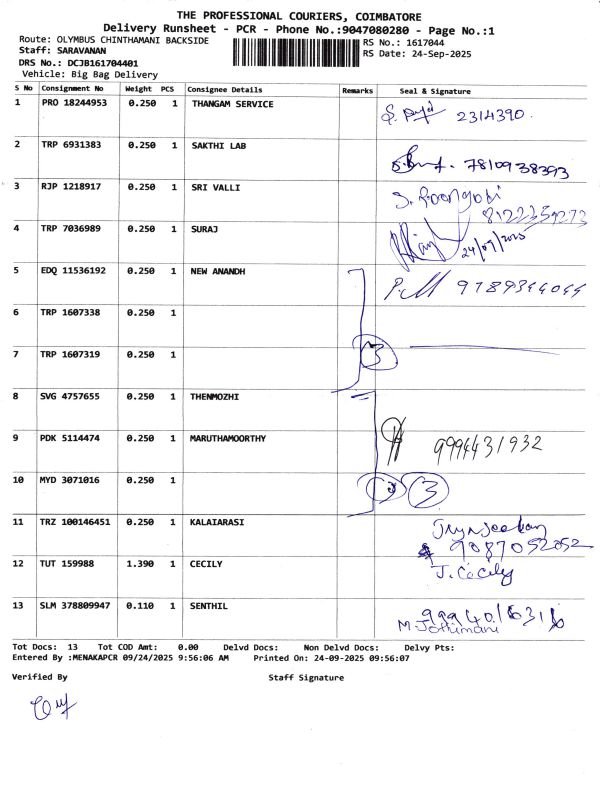 THE PROFESSIONAL COURIERS, COIMBATORE
Delivery Runsheet - PCR - Phone No.:9047080280 - Page No.:1
Route: OLYMBUS CHINTHAMANI BACKSIDE
RS No.: 1617044
Staff: SARAVANAN
RS Date: 24-Sep-2025
DRS No.: DCJB161704401
Vehicle: Big Bag Delivery
S No Consignment No Weight PCS Consignee Details Remarks Seal & Signature
1 PRO 18244953 0.250 1 THANGAM SERVICE 2314390
2 TRP 6931383 0.250 1 SAKTHI LAB 7810938393
3 RJP 1218917 0.250 1 SRI VALLI S. Poongodi
8122359273
4 TRP 7036989 0.250 1 SURAJ 24/09/2025
5 EDQ 11536192 0.250 1 NEW ANANDH 9789344044
6 TRP 1607338 0.250 1
7 TRP 1607319 0.250 1 3
8 SVG 4757655 0.250 1 THENMOZHI
9 PDK 5114474 0.250 1 MARUTHAMOORTHY 9994431932
10 MYD 3071016 0.250 1 3
11 TRZ 100146451 0.250 1 KALAIARASI
9087052052
12 TUT 159988 1.390 1 CECILY J. Cecily
13 SLM 378809947 0.110 1 SENTHIL 9994016316
M. Jothimani
Tot Docs: 13 Tot COD Amt: 0.00 Delvd Docs: Non Delvd Docs: Delvy Pts:
Entered By :MENAKAPCR 09/24/2025 9:56:06 AM Printed On: 24-09-2025 09:56:07
Verified By Staff Signature